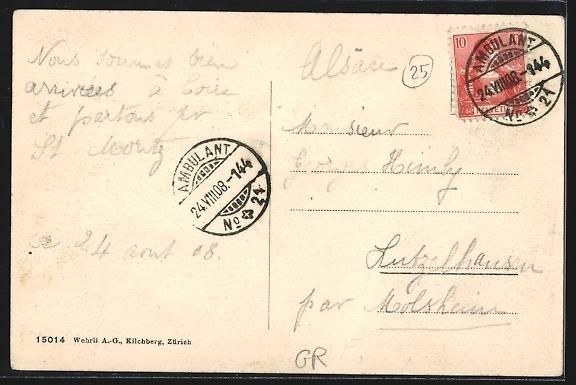 Nous sommes bien
arrivées à Coire
et partons pr
St Moritz
ce 24 aout 08.
15014 Wehrli A.-G., Kilchberg, Zürich
Alsace
25
10
AMBULANT
24.VIII.08.-144
No 21
AMBULANT
24.VIII.08.-144
No 21
Monsieur
Georges Himly
Lutzelhausen
par Molsheim
GR